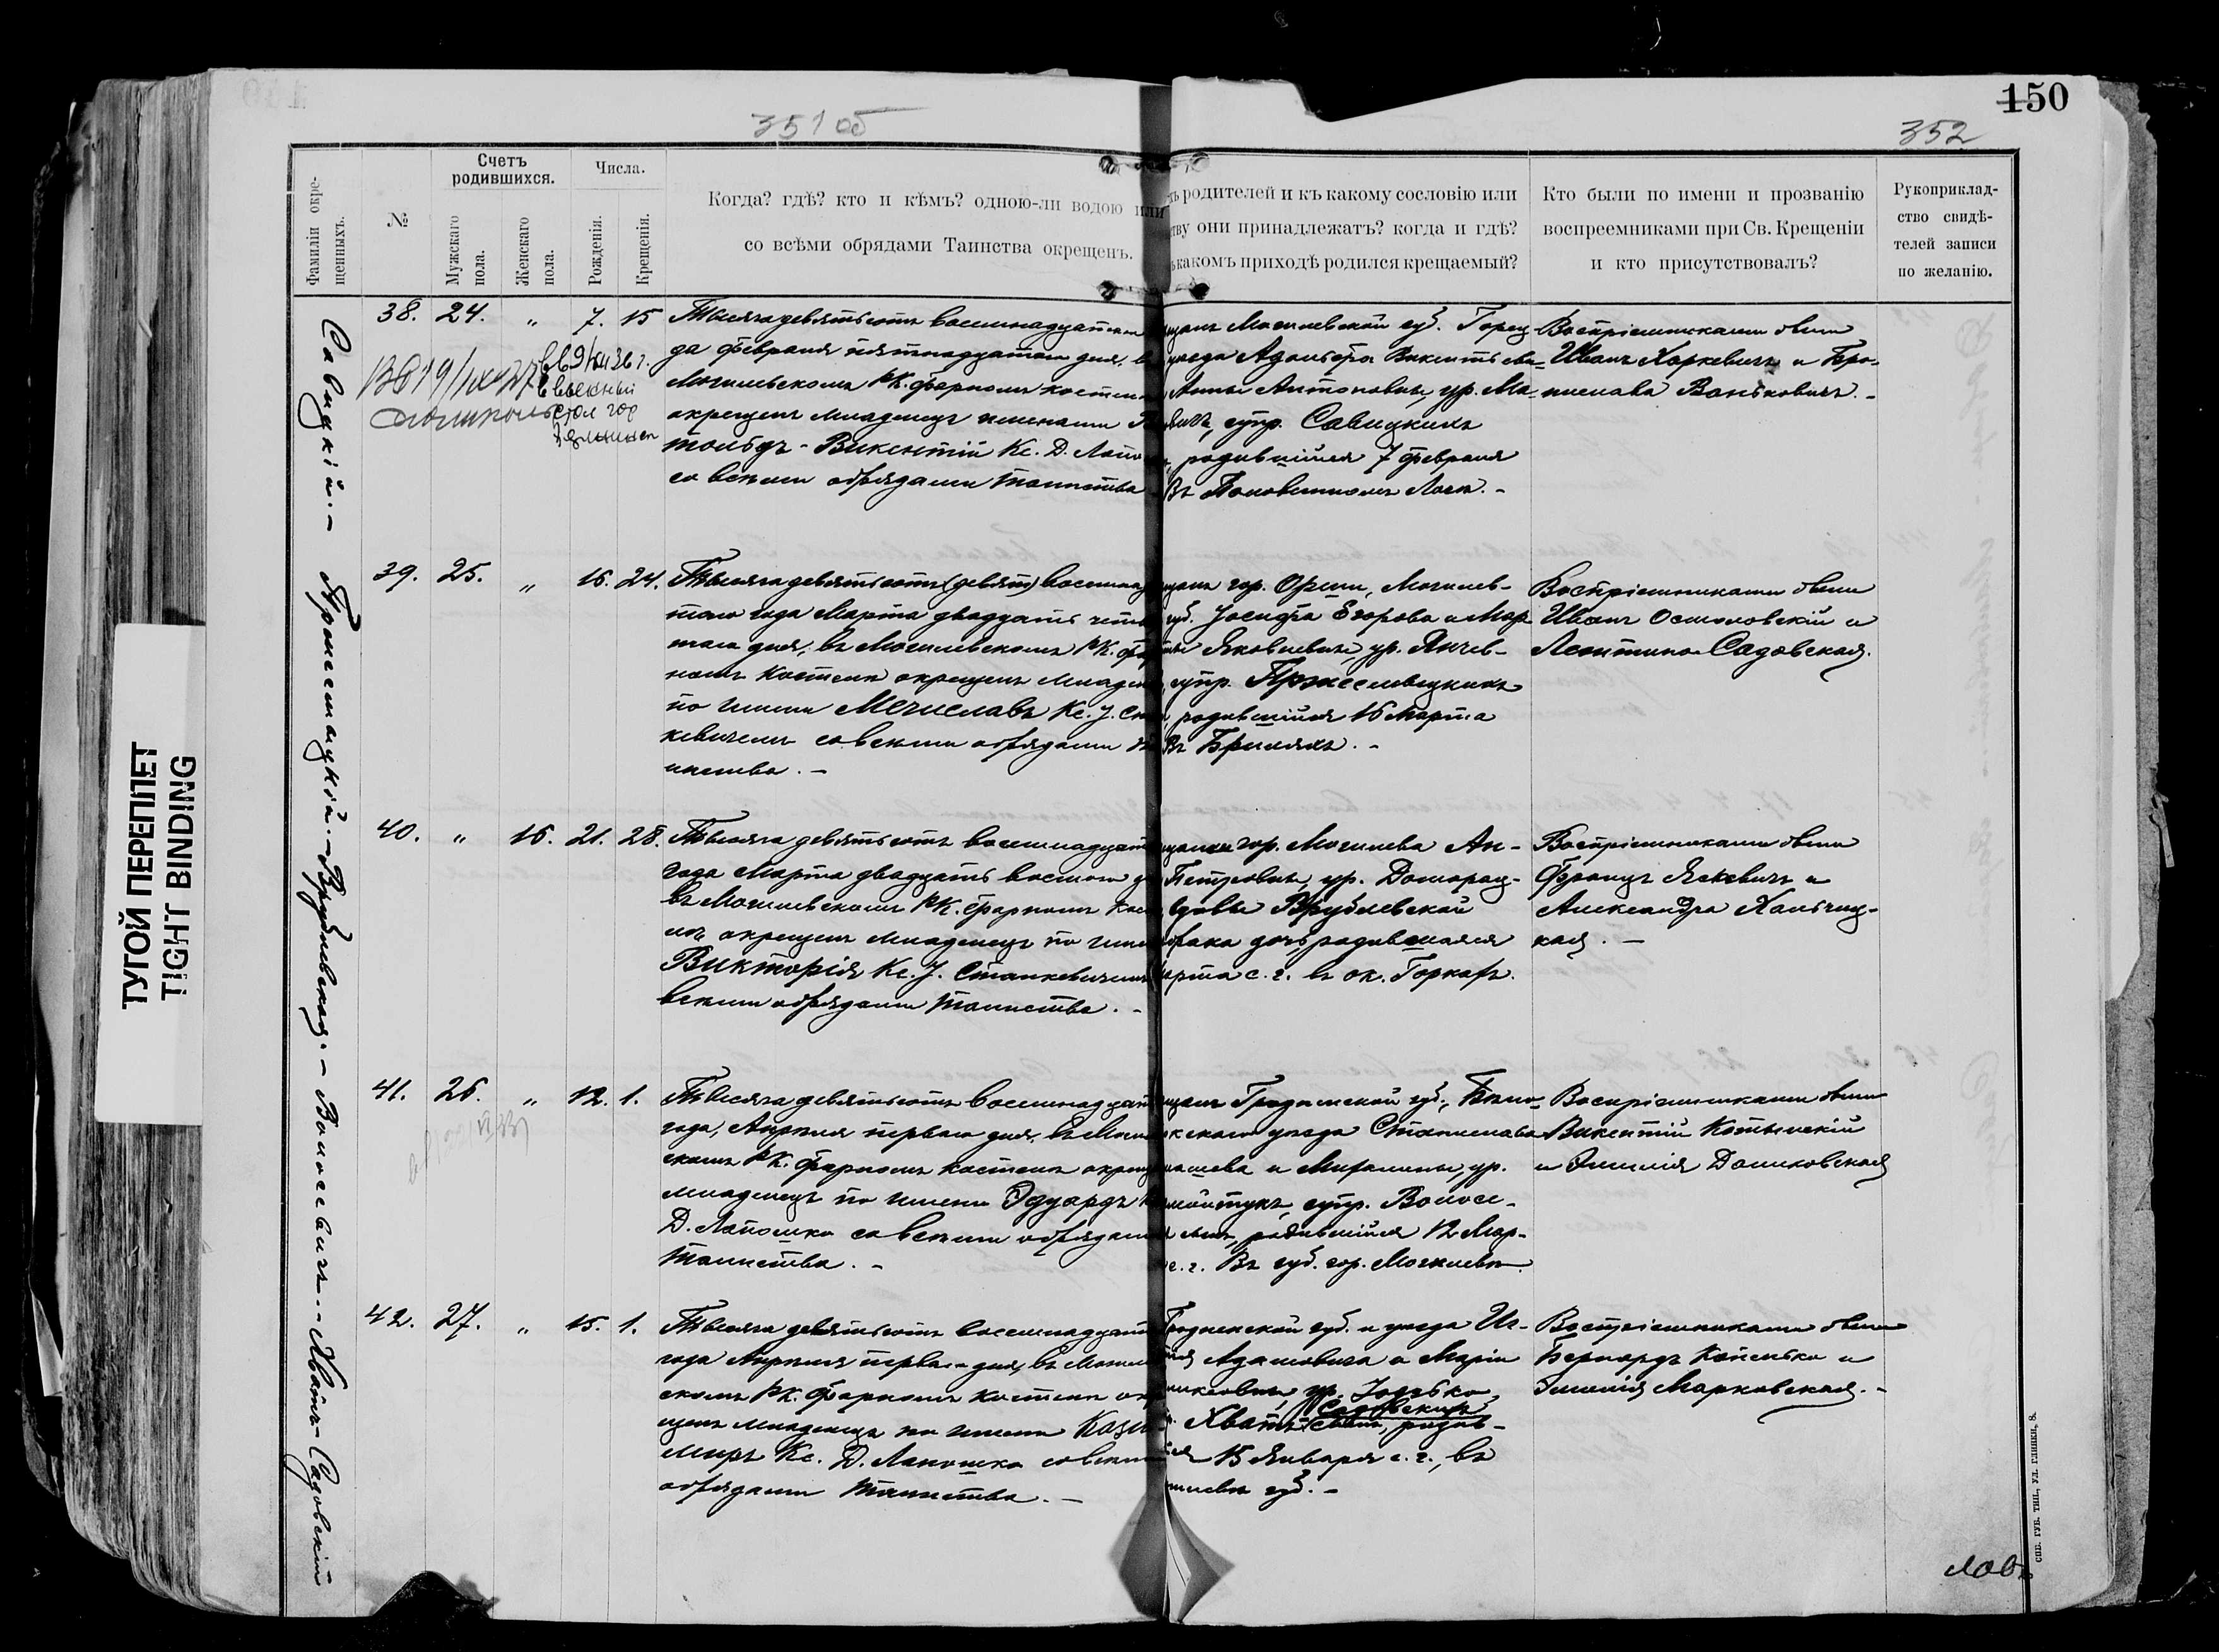 351 об
150
352
ТУГОЙ ПЕРЕПЛЕТ
TIGHT BINDING
Фамиліи окре-
щенныхъ.
№
Счетъ
родившихся.
Мужскаго
пола.
Женскаго
пола.
Числа.
Рожденія.
Крещенія.
Когда? гдѣ? кто и кѣмъ? одною-ли водою или
со всѣми обрядами Таинства окрещенъ.
родителей и къ какому сословію или
они принадлежатъ? когда и гдѣ?
какомъ приходѣ родился крещаемый?
Кто были по имени и прозванію
воспреемниками при Св. Крещеніи
и кто присутствовалъ?
Рукоприклад-
ство свидѣ-
телей записи
по желанію.
Савицкій.-
38. 24. „ 7. 15
Тысяча девятьсотъ восемнадцатаго
да февраля пятнадцатаго дня, въ
Могилевскомъ РК. фарномъ костелѣ
окрещенъ младенецъ именами
Викентій Кс. Д.
со всѣми обрядами таинства
Могилевской губ. Горец-
уѣзда Адольфа Викентьева
Анны Антоновны, ур. Ма-
супр. Савицкихъ
родившійся 7 февраля
Въ
Воспріемниками были
Иванъ Харкевичъ и Бро-
нислава Ваньковичъ.-
39. 25. „ 16. 24.
Тысяча девятьсотъ (девят) восемнад
таго года Марта двадцать четв
таго дня, въ Могилевскомъ РК. фар
номъ костелѣ окрещенъ младен
по имени Мечиславъ Кс. J. Стан
кевичемъ со всѣми обрядами Та
инства.-
гор. Орши, Могилев-
губ. Jосифа Егорова и Мар-
Яковлевны, ур. Янчев-
супр. Пржесмыцкихъ
родившійся 16 Марта
Въ
Воспріемниками были
Иванъ Осмоловскій и
Леонтина Садовская.
Врублевская.-
40. „ 16. 21. 28.
Тысяча девятьсотъ восемнадцат
года Марта двадцать восьмого дня
въ Могилевскомъ РК. фарномъ кос
окрещенъ младенецъ по имени
Викторія Кс. J. Станкевичемъ
всѣми обрядами таинства.-
гор. Могилева Ан-
Петровны, ур. Доморац-
вдовы Врублевской
брака дочь, родившаяся
Марта с. г. въ ок. Горкахъ.
Воспріемниками были
Францъ Яскевичъ и
Александра Хальчиц-
кая.-
Волосевичъ.-
41. 26. „ 12. 1.
Тысяча девятьсотъ восемнадцат
года, Апрѣля перваго дня, въ Могилев
скомъ РК. фарномъ костелѣ окрещ
младенецъ по имени Эдуардъ Кс
Д. со всѣми обрядами
таинства.-
Гродненской губ., Бѣло-
скаго уѣзда Станислава
и Михалины, ур.
супр. Волосе-
сынъ, родившійся 12 Мар-
с. г. Въ губ. гор. Могилевѣ
Воспріемниками были
Викентій
и Эмилія Домиковская
Хватъ-Садовскій
42. 27. „ 15. 1.
Тысяча девятьсотъ восемнадцат
года Апрѣля перваго дня, въ Могилев
скомъ РК. фарномъ костелѣ окре
щенъ младенецъ по имени Кази
миръ Кс. Д. со всѣми
обрядами таинства.-
Гродненской губ. и уѣзда Иг-
Адамовича и Маріи
ур.
Садовскихъ
Хватъ- сынъ, родив-
15 Января с. г., въ
губ.-
Воспріемниками были
Бернардъ Копенко и
Эмилія Марковская.-
СПБ. ГУБ. ТИП., УЛ. ГЛИНКИ, 8.